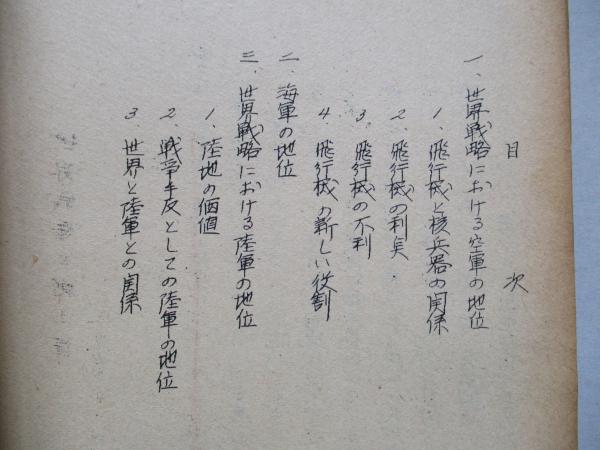 目次
一、世界戦略における空軍の地位
1、飛行機と核兵器の関係
2、飛行機の利点
3、飛行機の不利
4、飛行機の新しい役割
二、海軍の地位
三、世界戦略における陸軍の地位
1、陸地の価値
2、戦争手段としての陸軍の地位
3 世界と陸軍との関係